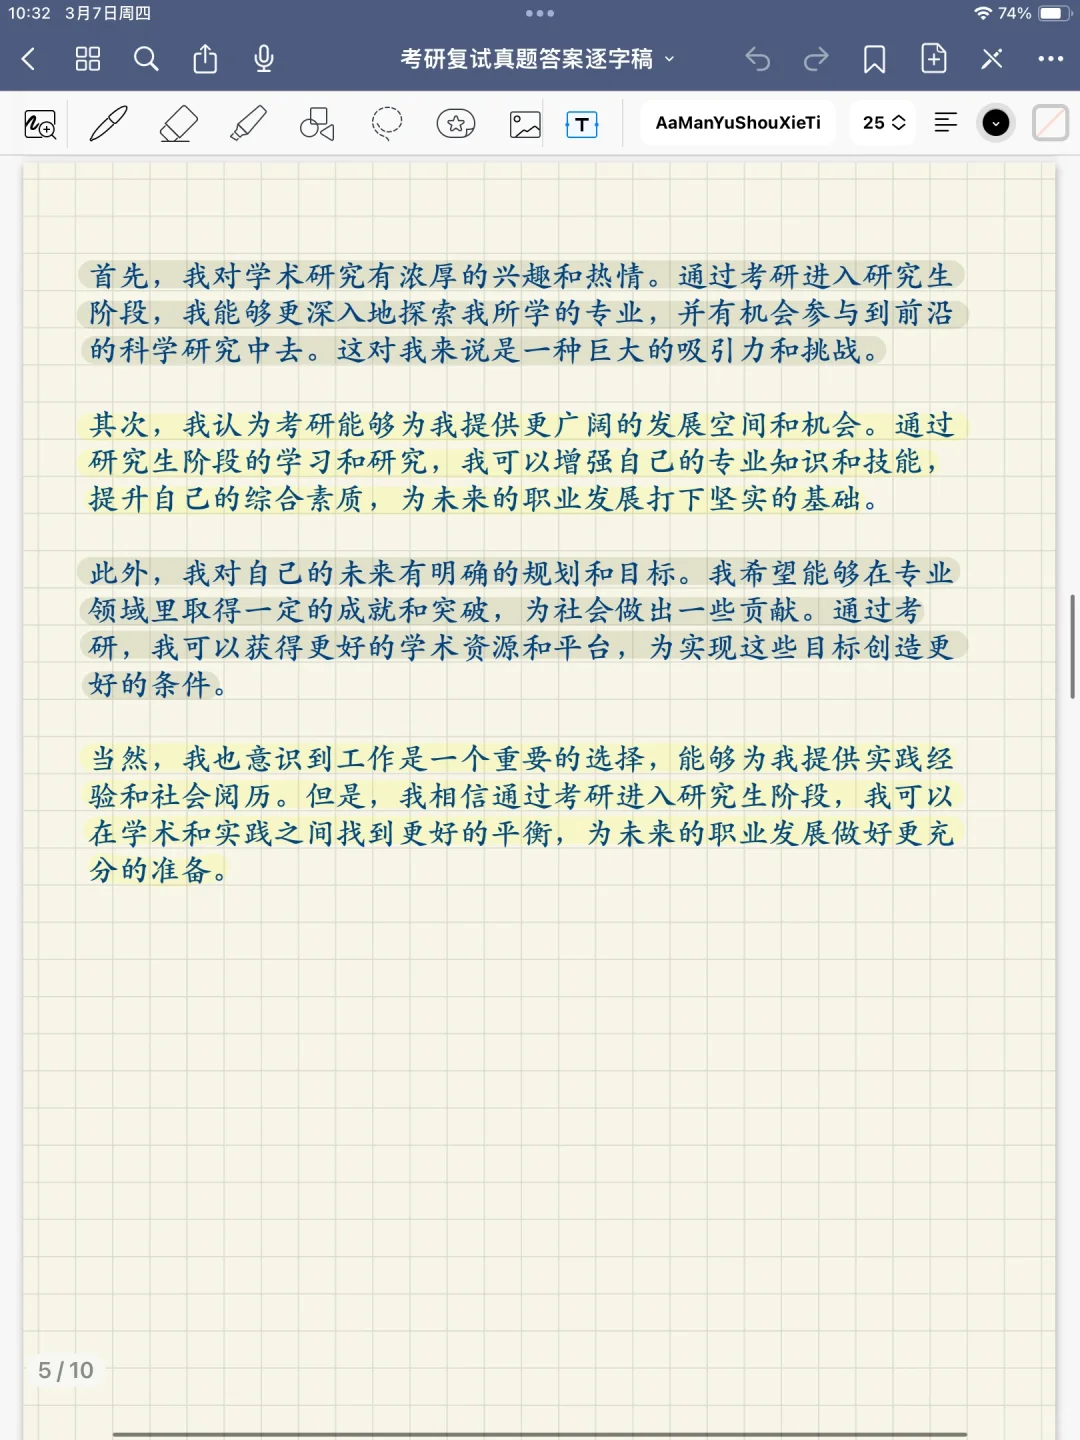 10:32 3月7日周四
74%
考研复试真题答案逐字稿
AaManYuShouXieTi
25
首先，我对学术研究有浓厚的兴趣和热情。通过考研进入研究生
阶段，我能够更深入地探索我所学的专业，并有机会参与到前沿
的科学研究中去。这对我来说是一种巨大的吸引力和挑战。
其次，我认为考研能够为我提供更广阔的发展空间和机会。通过
研究生阶段的学习和研究，我可以增强自己的专业知识和技能，
提升自己的综合素质，为未来的职业发展打下坚实的基础。
此外，我对自己的未来有明确的规划和目标。我希望能够在专业
领域里取得一定的成就和突破，为社会做出一些贡献。通过考
研，我可以获得更好的学术资源和平台，为实现这些目标创造更
好的条件。
当然，我也意识到工作是一个重要的选择，能够为我提供实践经
验和社会阅历。但是，我相信通过考研进入研究生阶段，我可以
在学术和实践之间找到更好的平衡，为未来的职业发展做好更充
分的准备。
5/10